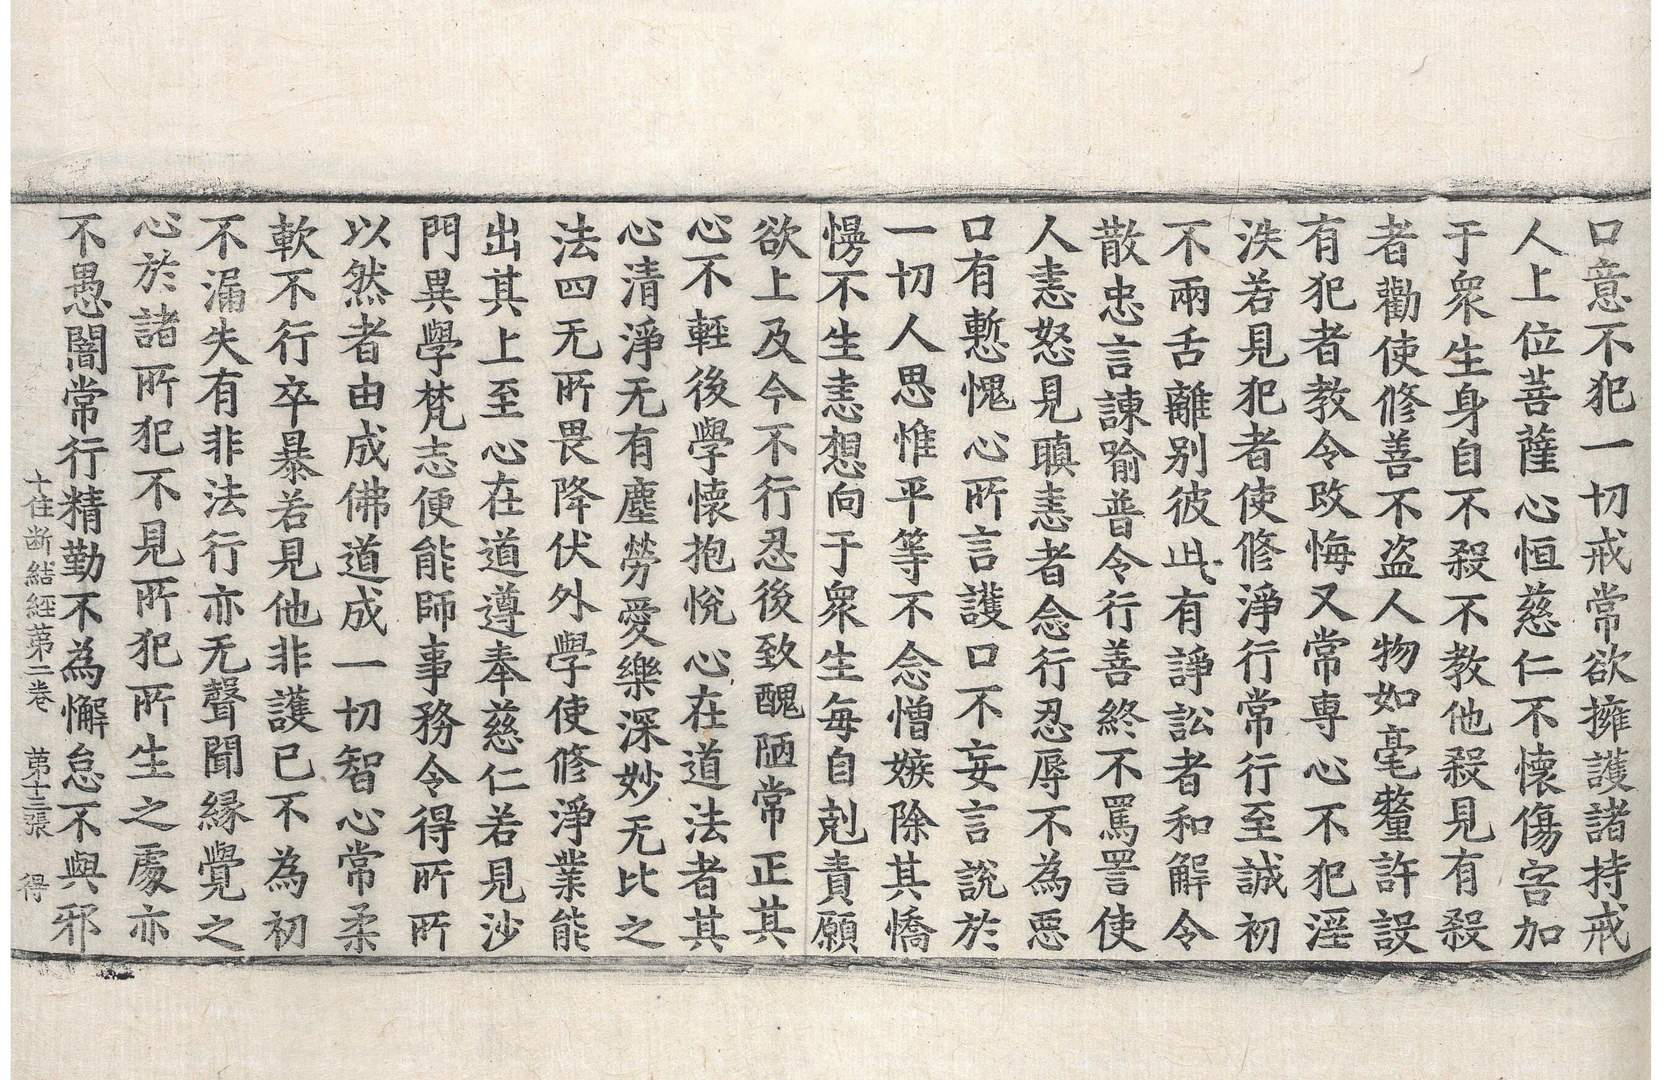 口意不犯一切戒常欲擁護諸持戒
人上位菩薩心恒慈仁不懷傷害加
于衆生身自不殺不教他殺見有殺
者勸使修善不盜人物如毫釐許設
有犯者教令改悔又常專心不犯淫
泆若見犯者使修淨行常行至誠初
不兩舌離別彼此有諍訟者和解令
散忠言諫喻普令行善終不罵詈使
人恚怒見瞋恚者念行忍辱不為惡
口有慙愧心所言護口不妄言說於
一切人思惟平等不念憎嫉除其憍
慢不生恚想向于衆生每自剋責願
欲上及今不行忍後致醜陋常正其
心不輕後學懷抱悅心在道法者其
心清淨无有塵勞愛樂深妙无比之
法四无所畏降伏外學使修淨業能
出其上至心在道遵奉慈仁若見沙
門異學梵志便能師事務令得所所
以然者由成佛道成一切智心常柔
軟不行卒暴若見他非護已不為初
不漏失有非法行亦无聲聞緣覺之
心於諸所犯不見所犯所生之處亦
不愚闇常行精勤不為懈怠不與邪
十住断結経第二卷　第十三張　得